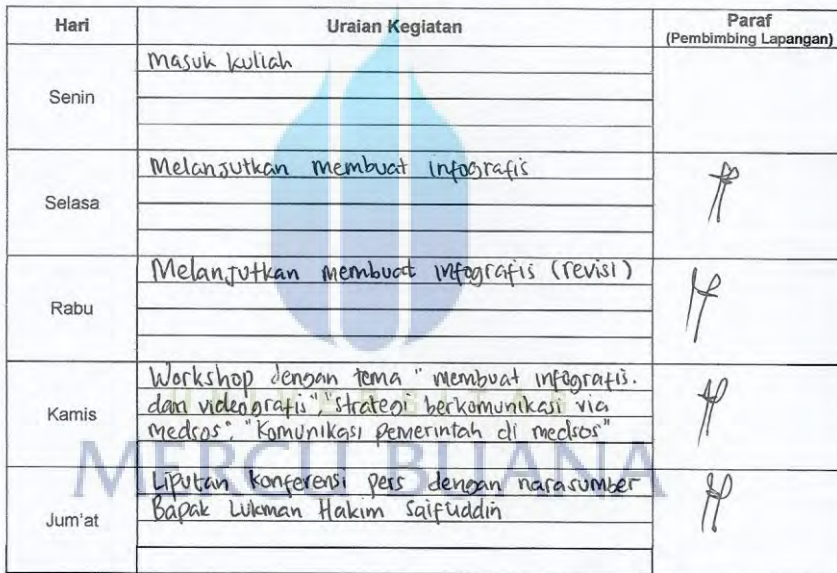 Hari Uraian Kegiatan Paraf
(Pembimbing Lapangan)
Senin
Masuk kuliah
Selasa
Melanjutkan membuat infografis
Rabu
Melanjutkan membuat infografis (revisi)
Kamis
Workshop dengan tema "membuat infografis.
dan videografis", "strategi berkomunikasi via
medsos", "Komunikasi pemerintah di medsos"
MERCU BUANA
Jum'at
Liputan konferensi pers dengan narasumber
Bapak Lukman Hakim Saifuddin